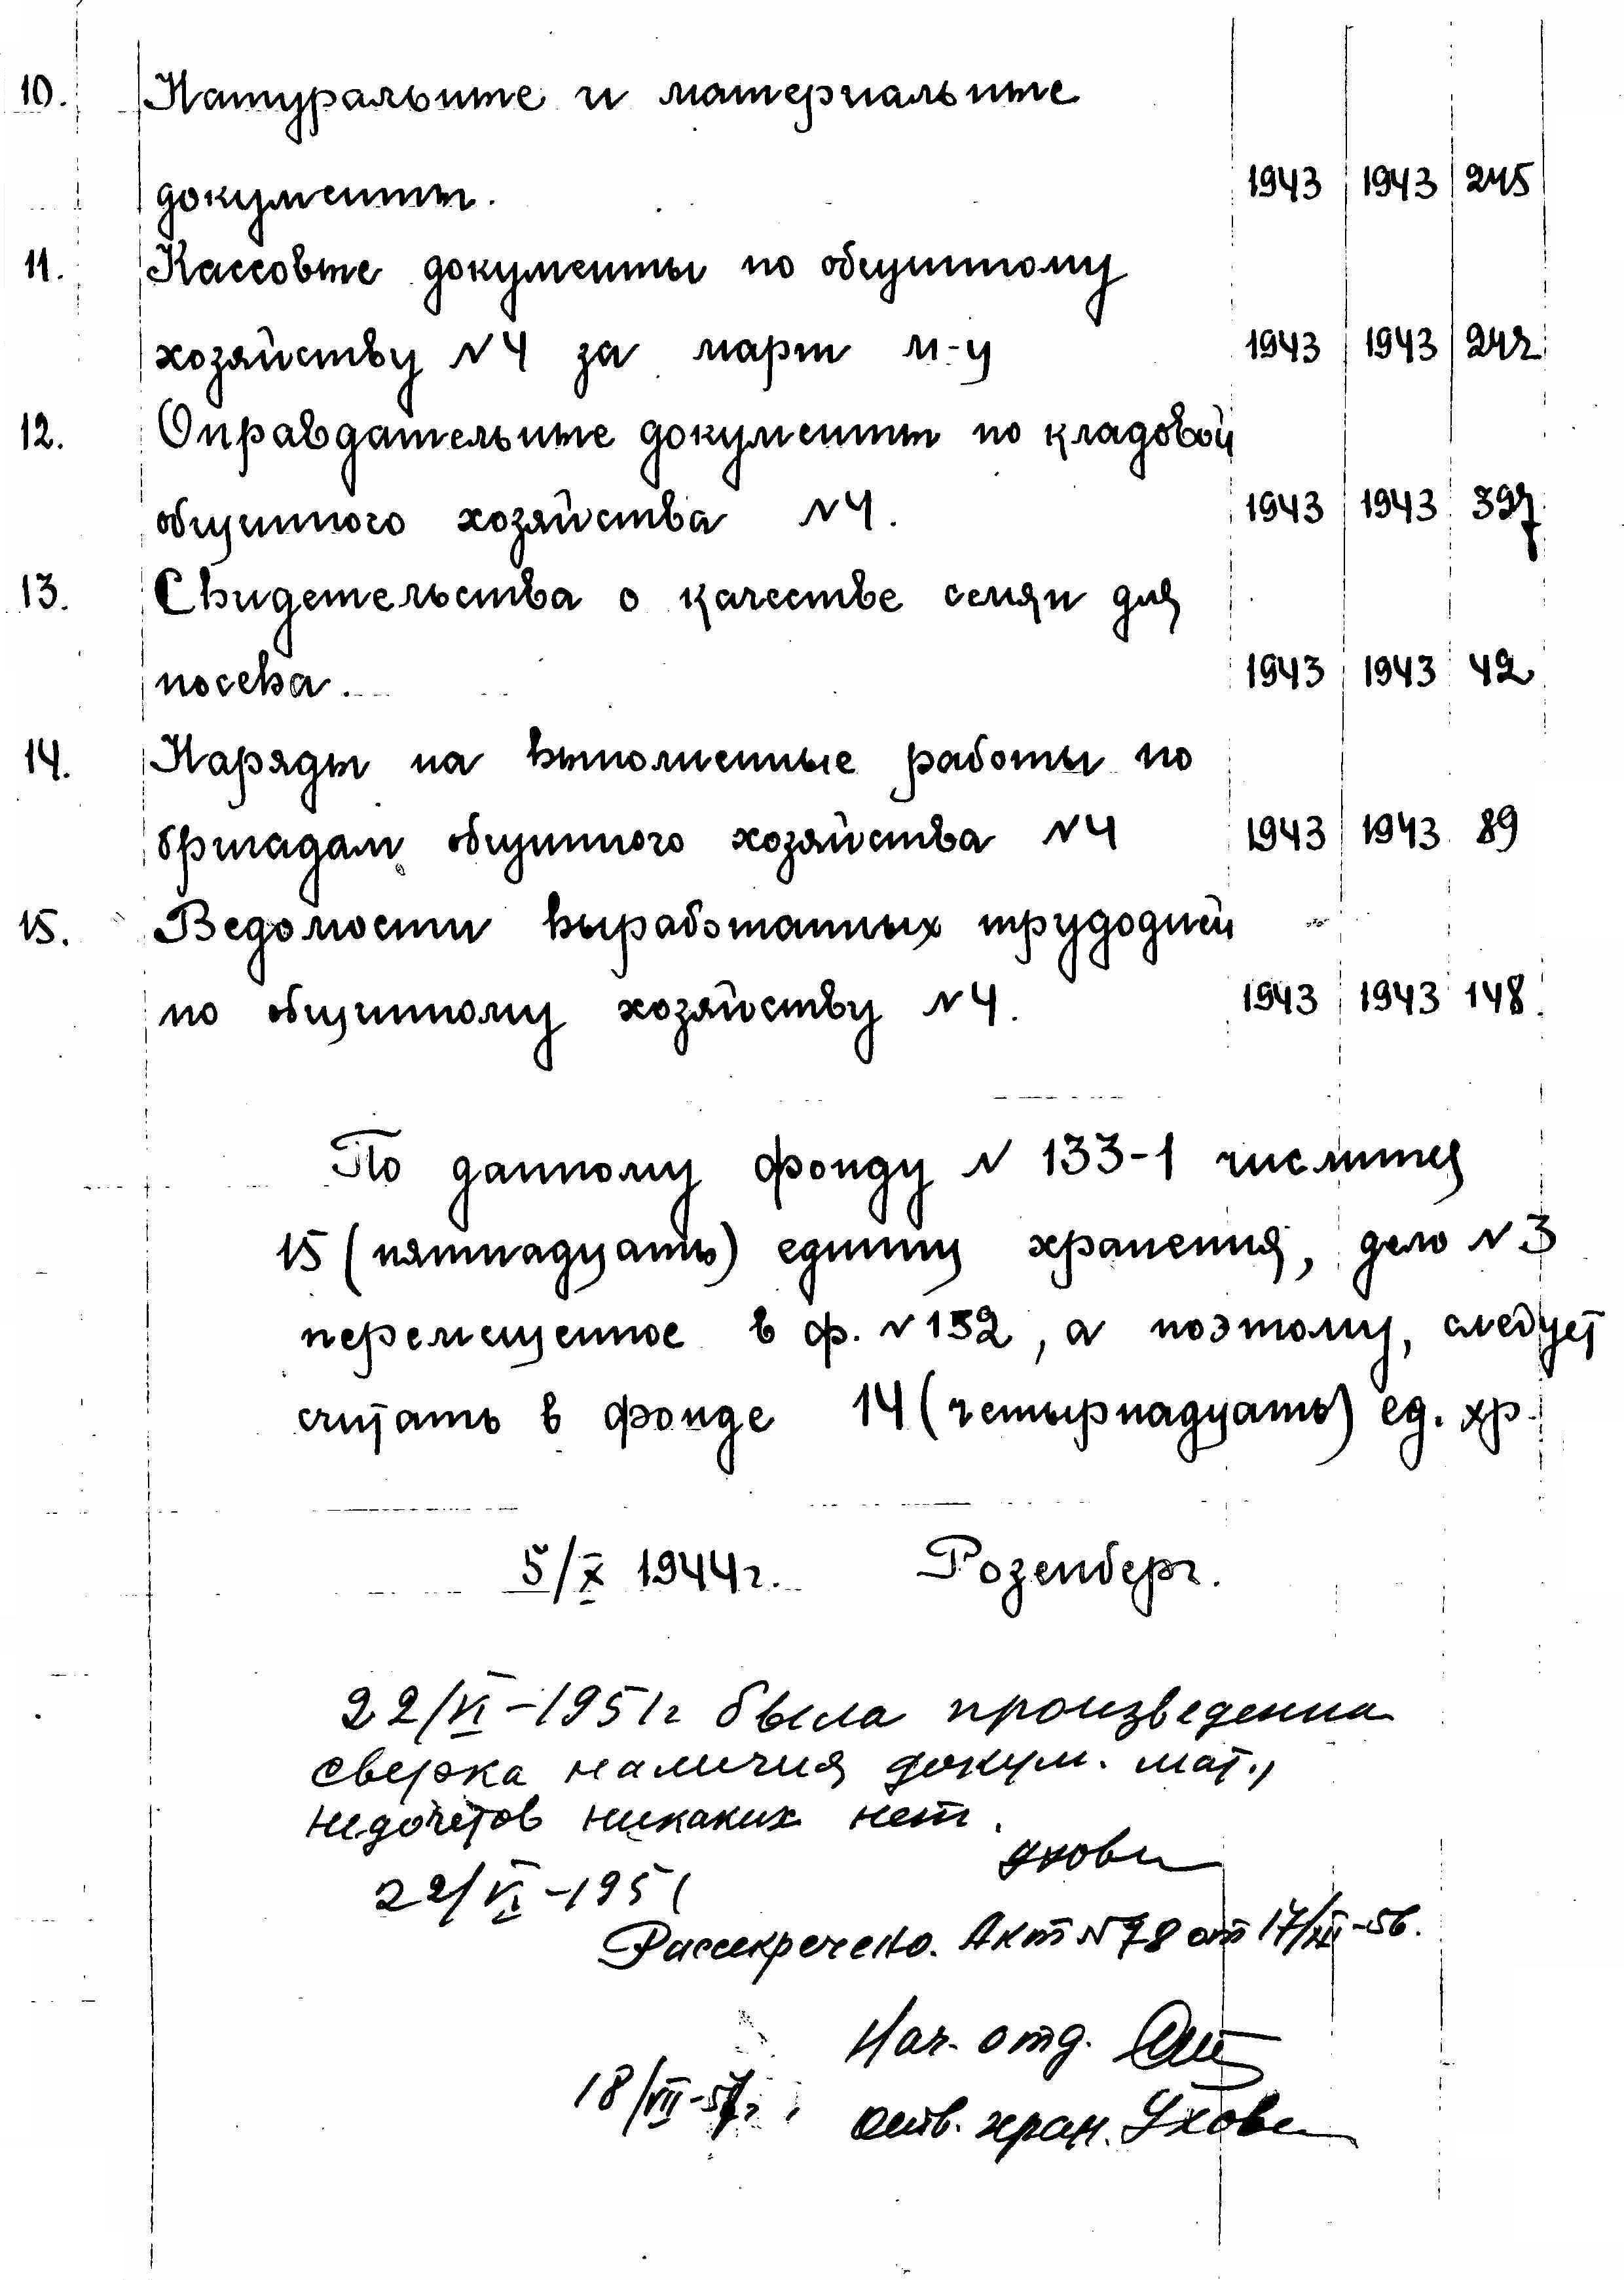 10. Натуральные и материальные
документы. 1943 1943 245
11. Кассовые документы по общинному
хозяйству N 4 за март м-ц 1943 1943 242
12. Оправдательные документы по кладовой
общинного хозяйства N 4. 1943 1943 397
13. Свидетельства о качестве семян для
посева. 1943 1943 42
14. Наряды на выполненные работы по
бригадам общинного хозяйства N 4 1943 1943 89
15. Ведомости выработанных трудодней
по общинному хозяйству N 4. 1943 1943 148
По данному фонду N 133-1 числится
15 (пятнадцать) единиц хранения, дело N 3
перемещенное в ф. N 132, а поэтому, следует
считать в фонде 14 (четырнадцать) ед. хр.
5/X 1944г. Розенберг.
22/VI-1951г была произведенна
сверка наличия докум. мат.,
недочетов никаких нет.
22/VI-1951
Рассекречено. Акт N 78 от 17/XII-56.
Нач. отд.
18/VII-57г. Отв. хран.